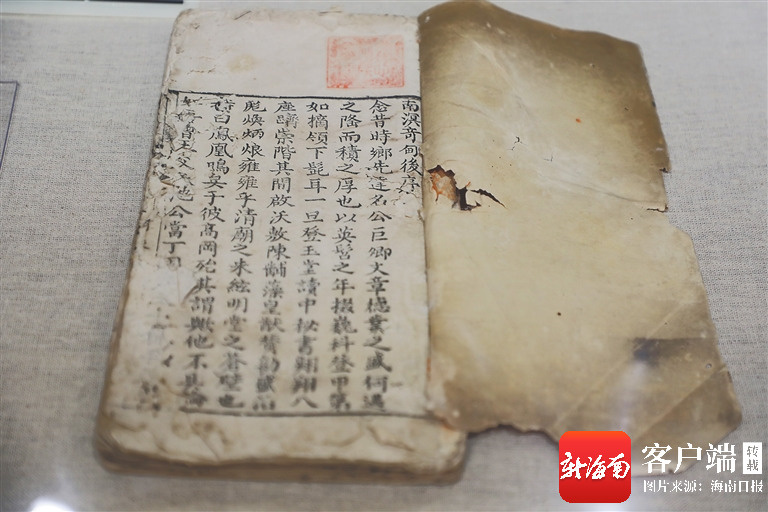 南溟奇甸後序
念昔時鄉先達名公巨卿文章德業之盛何過
之隆而積之厚也以英髫之年掇巍科登甲第
如摘頷下髭耳一旦登玉堂讀中秘書翱翔八
座躋崇階其間啟沃敷陳黼藻皇猷贊勷
彪煥炳烺雍雍乎清廟之朱絃明堂之蒼璧也
曰鳳凰鳴矣于彼高岡殆其謂歟他不具
公當丁
新海南
客户端
转载
图片来源：海南日报